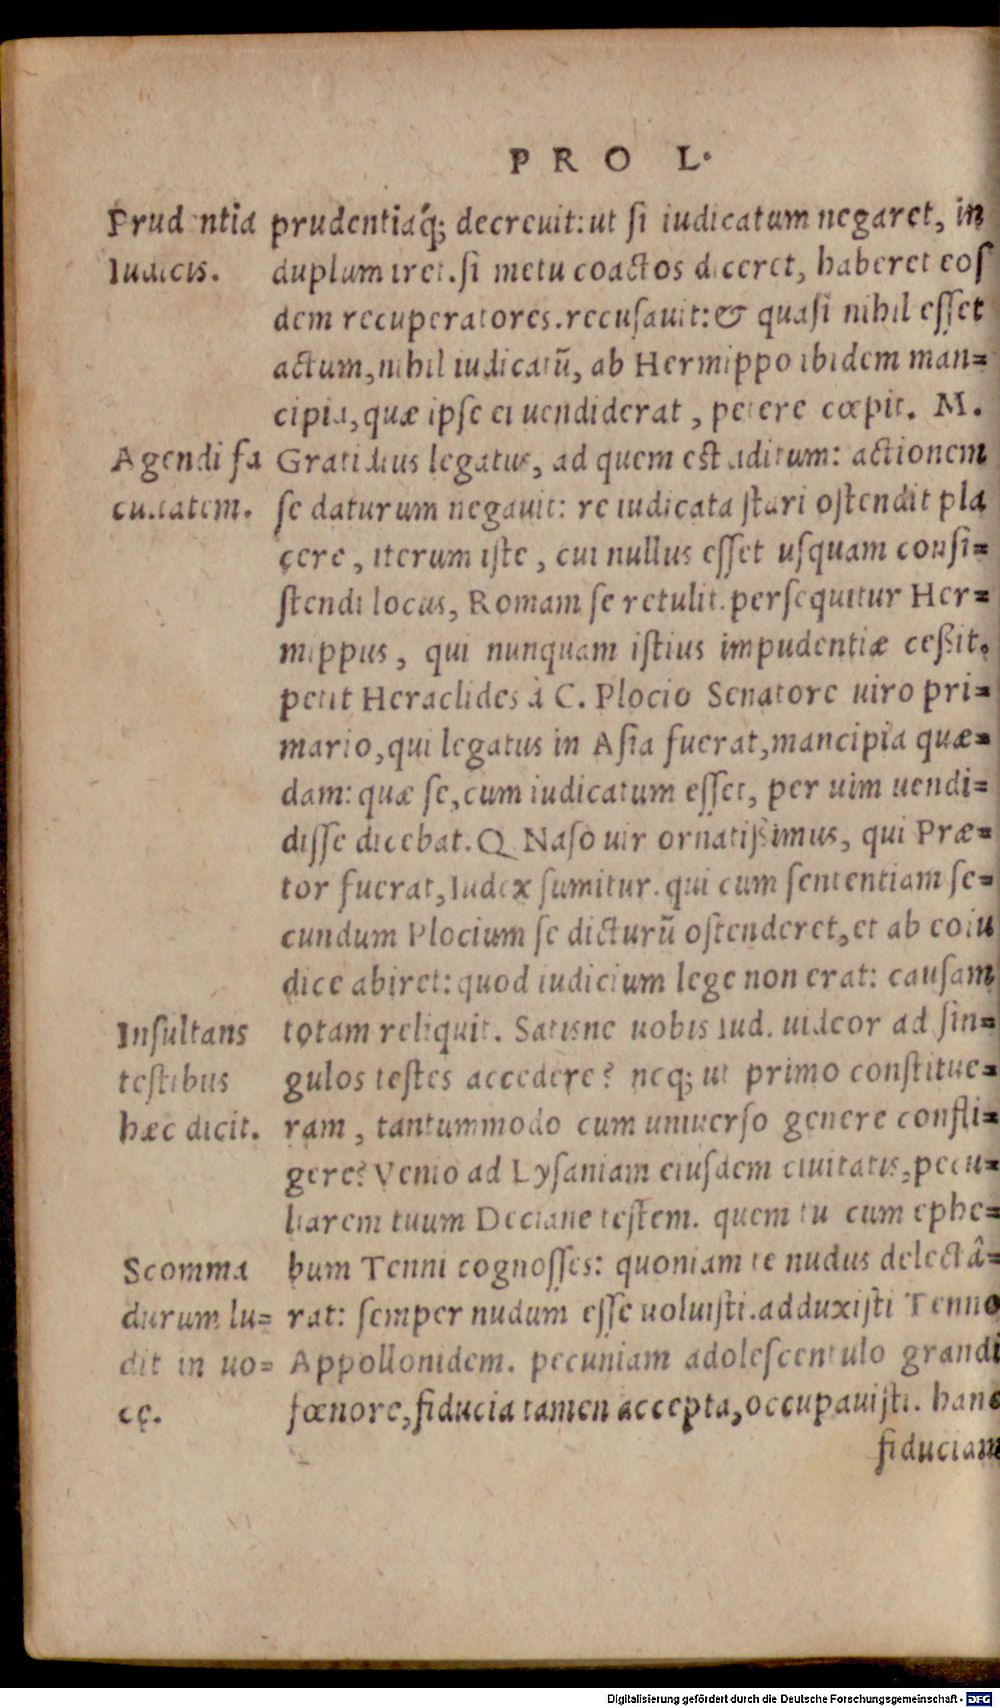 PRO L.
Prudentia
Iudicis.
prudentiáq; decreuit: ut ſi iudicatum negaret, in
duplum iret. ſi metu coactos diceret, haberet eoſ
dem recuperatores. recuſauit: & quaſi nihil eſſet
actum, nihil iudicatũ, ab Hermippo ibidem man=
cipia, quæ ipſe ei uendiderat, petere cœpit. M.
Agendi fa
cultatem.
Gratidius legatus, ad quem est aditum: actionem
ſe daturum negauit: re iudicata ſtari oſtendit pla
cere, iterum iſte, cui nullus eſſet uſquam conſi=
ſtendi locus, Romam ſe retulit. perſequitur Her=
mippus, qui nunquam iſtius impudentiæ ceßit.
petit Heraclides à C. Plocio Senatore uiro pri=
mario, qui legatus in Aſia fuerat, mancipia quæ=
dam: quæ ſe, cum iudicatum eſſet, per uim uendi=
diſſe dicebat. Q. Naſo uir ornatißimus, qui Præ=
tor fuerat, Iudex ſumitur. qui cum ſententiam ſe=
cundum Plocium ſe dicturũ oſtenderet, et ab eo iu
dice abiret: quod iudicium lege non erat: cauſam
Inſultans
teſtibus
hæc dicit.
totam reliquit. Satisne uobis Iud. uideor ad ſin=
gulos teſtes accedere? neq; ut primo conſtitue=
ram, tantummodo cum uniuerſo genere confli=
gere? Venio ad Lyſaniam eiuſdem ciuitatis, pecu=
liarem tuum Deciane teſtem. quem tu cum ephe=
Scomma
durum lu=
dit in uo=
ce.
bum Tenni cognoſſes: quoniam te nudus delectâ=
rat: ſemper nudum eſſe uoluiſti. adduxiſti Tenno
Appollonidem. pecuniam adoleſcentulo grandi
fœnore, fiducia tamen accepta, occupauiſti. hanc
fiduciam
Digitalisierung gefördert durch die Deutsche Forschungsgemeinschaft - DFG